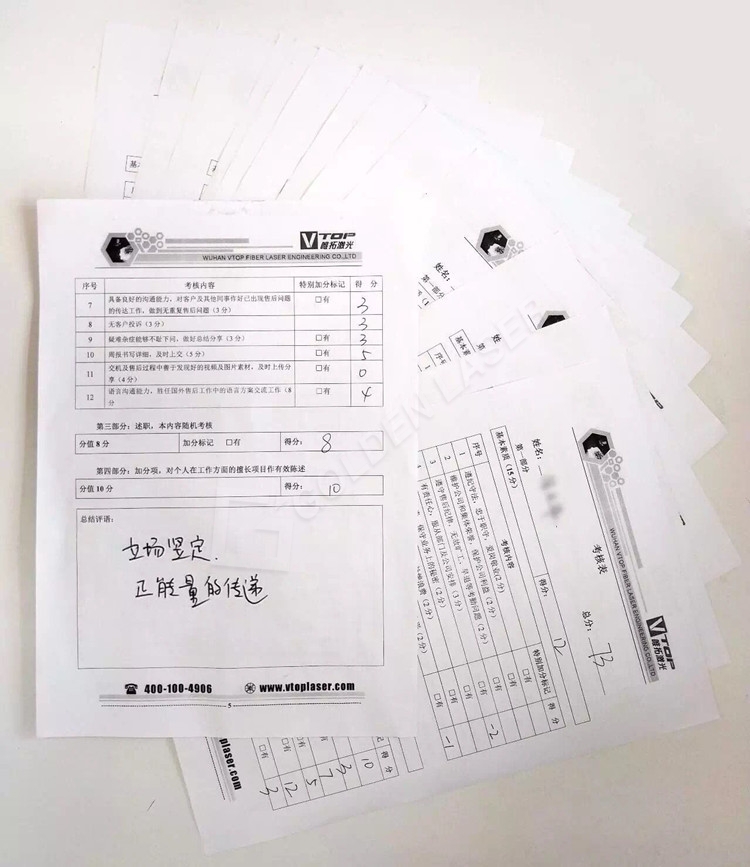 VTOP
普拓激光
WUHAN VTOP FIBER LASER ENGINEERING CO.,LTD
序号 考核内容 特别加分标记 得 分
7 具备良好的沟通能力,对客户及其他同事作好已出现售后问题的传达工作,做到无重复售后问题(3 分) □有 3
8 无客户投诉(3 分) 3
9 疑难杂症能够不耻下问,做好总结分享(3 分) □有 3
10 周报书写详细,及时上交(5 分) □有 5
11 交机及售后过程中善于发现好的视频及图片素材,及时上传分享(4 分) □有 0
12 语言沟通能力,胜任国外售后工作中的语言方案交流工作(8 分 □有 4
第三部分:述职,本内容随机考核
分值 8 分 加分标记 □有 得分: 8
第四部分:加分项,对个人在工作方面的擅长项目作有效陈述
分值 10 分 得分: 10
总结评语:
立场坚定.
正能量的传递
400-100-4906 www.vtoplaser.com
5
GOLDEN LASER
VTOP
普拓激光
WUHAN VTOP FIBER LASER ENGINEERING CO.,LTD
考核表
姓名: 总分: 73
第一部分
基本素质(15 分) 得分: 12
序号 考核内容 特别加分标记 得 分
1 遵纪守法,忠于职守,爱岗敬业(2 分) □有
2 维护公司和集体荣誉,保护公司利益(2 分) □有 -2
3 遵守售后纪律,无迟旷工、早退等考勤问题(2 分) □有
有责任心,服从部门及公司安排(3 分) □有 -1
保守业务上的秘密(2 分) □有
浪费(2 分) □有
得 分
10
3
7
5
12
3
姓名:
第一部分
姓 名
第一部
基本素